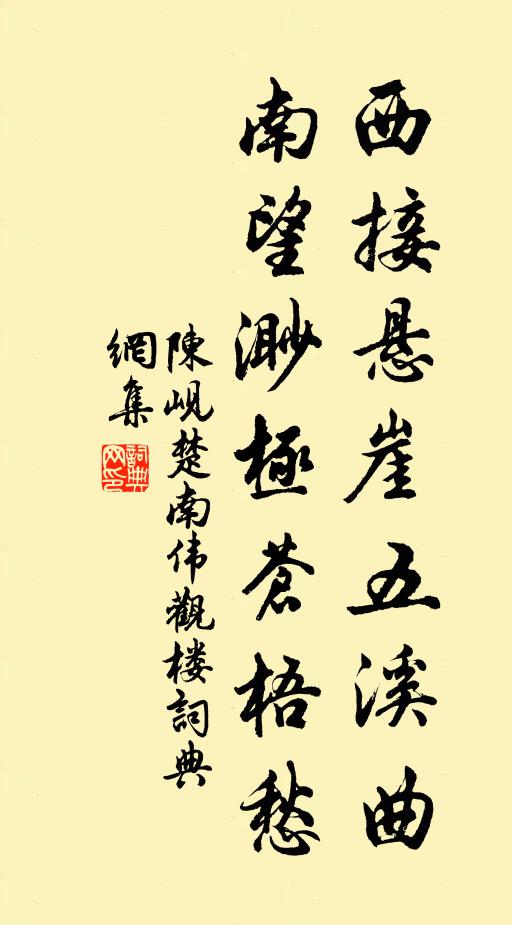 西接悬崖五溪曲
南望渺極蒼梧愁
陳峴楚南伟觀楼詞典
網集
詞典
网印